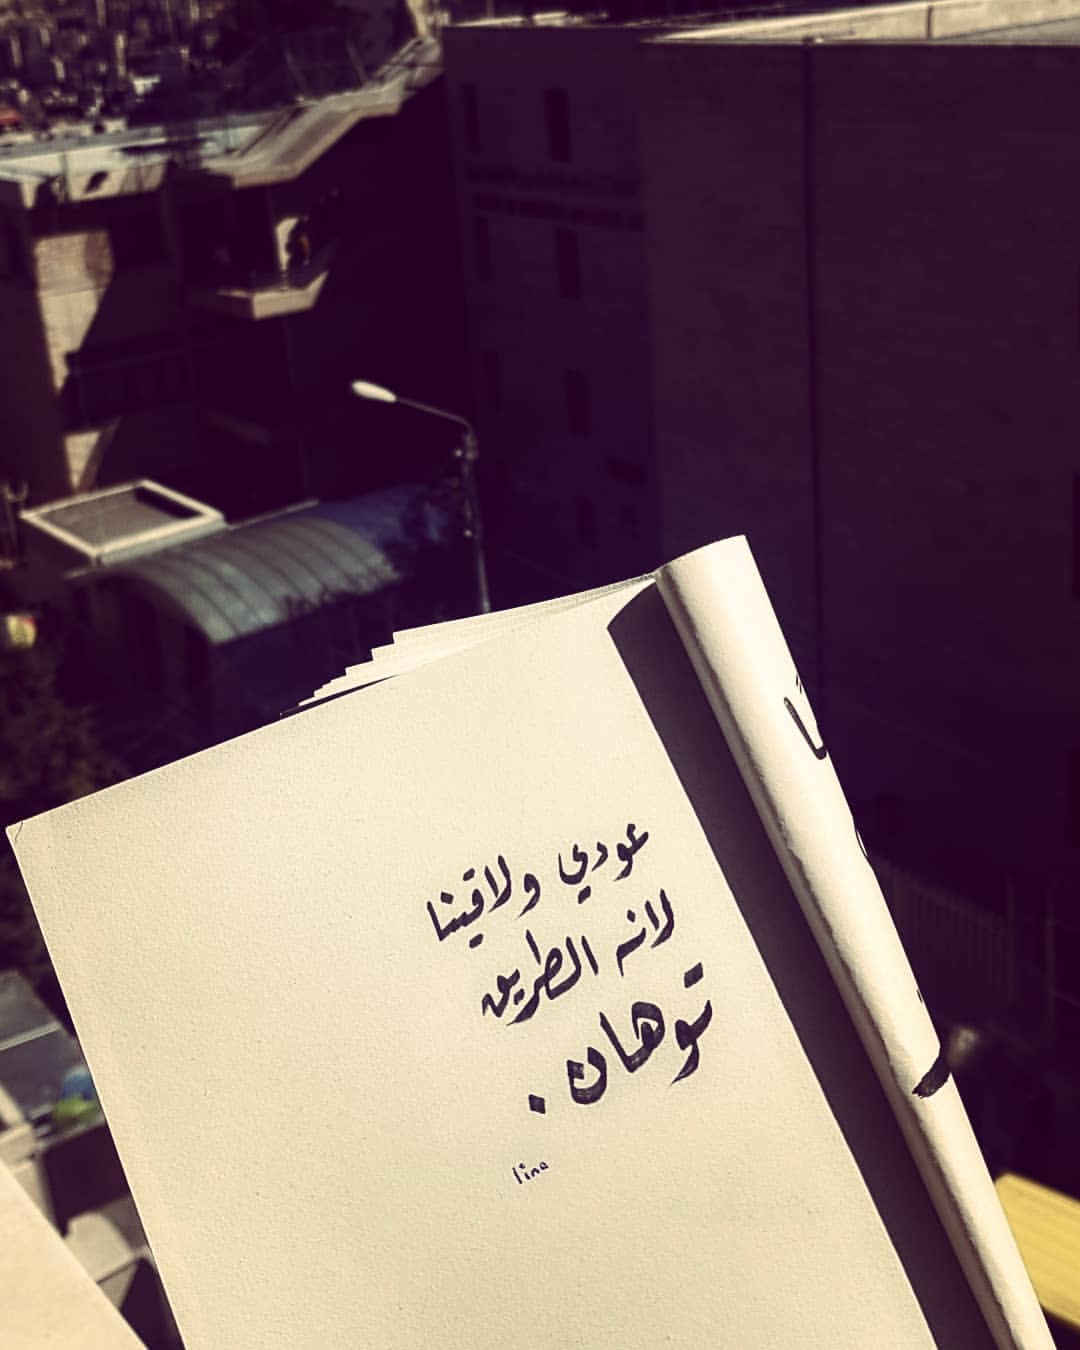 عودي ولاقينا
لانه الطريق
توهان .
lina